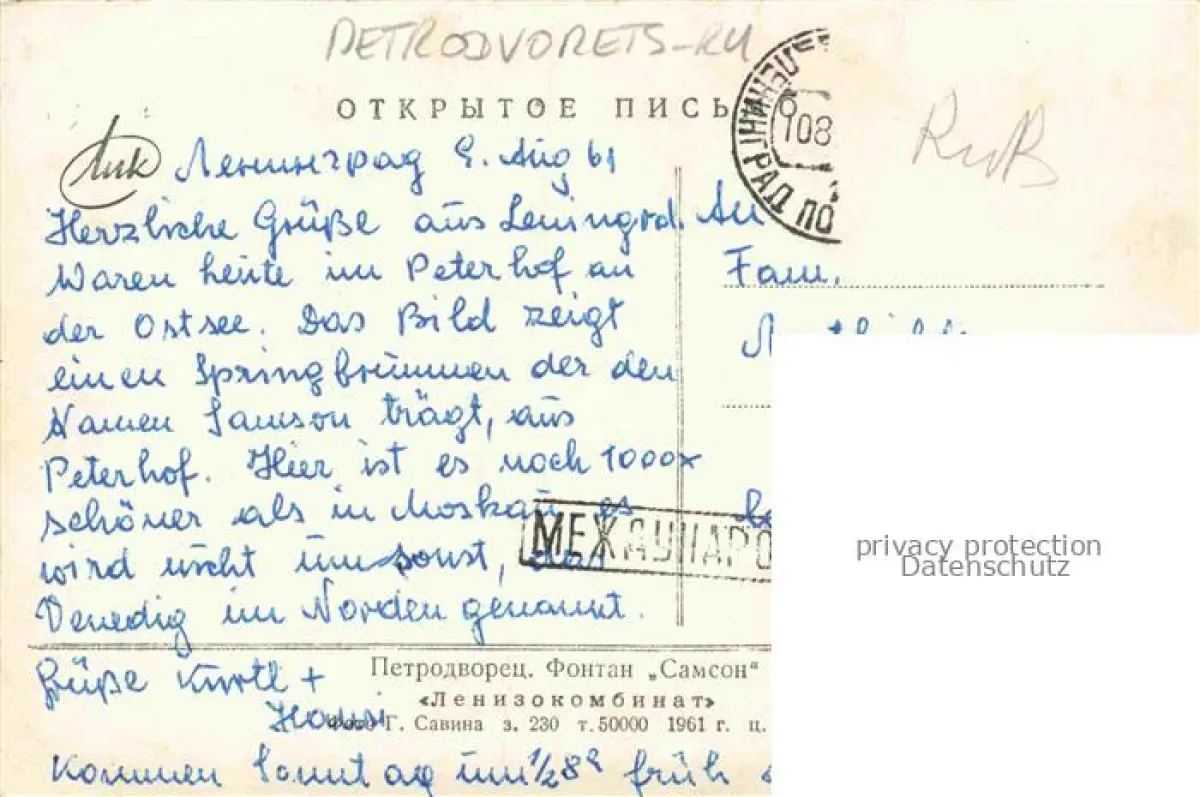 PETRODVORETS-RU
ОТКРЫТОЕ ПИСЬМО
ЛЕНИНГРАД ПО
108
RuB
Ленинград 9. Aug 61
Herzliche Grüße aus Leningrd.
Waren heute im Peterhof an
der Ostsee. Das Bild zeigt
einen Springbrunnen der den
Namen Samson trägt, aus
Peterhof. Hier ist es noch 1000x
schöner als in Moskau es
wird nicht umsonst, das
Venedig im Norden genannt.
Grüße Kurtl +
Hansi
Kommen Sonntag um 1/2 8 früh
An
Fam.
МЕЖДУНАРО
Петродворец. Фонтан „Самсон“
«Ленизокомбинат»
Фото Г. Савина з. 230 т. 50000 1961 г. ц.
privacy protection
Datenschutz